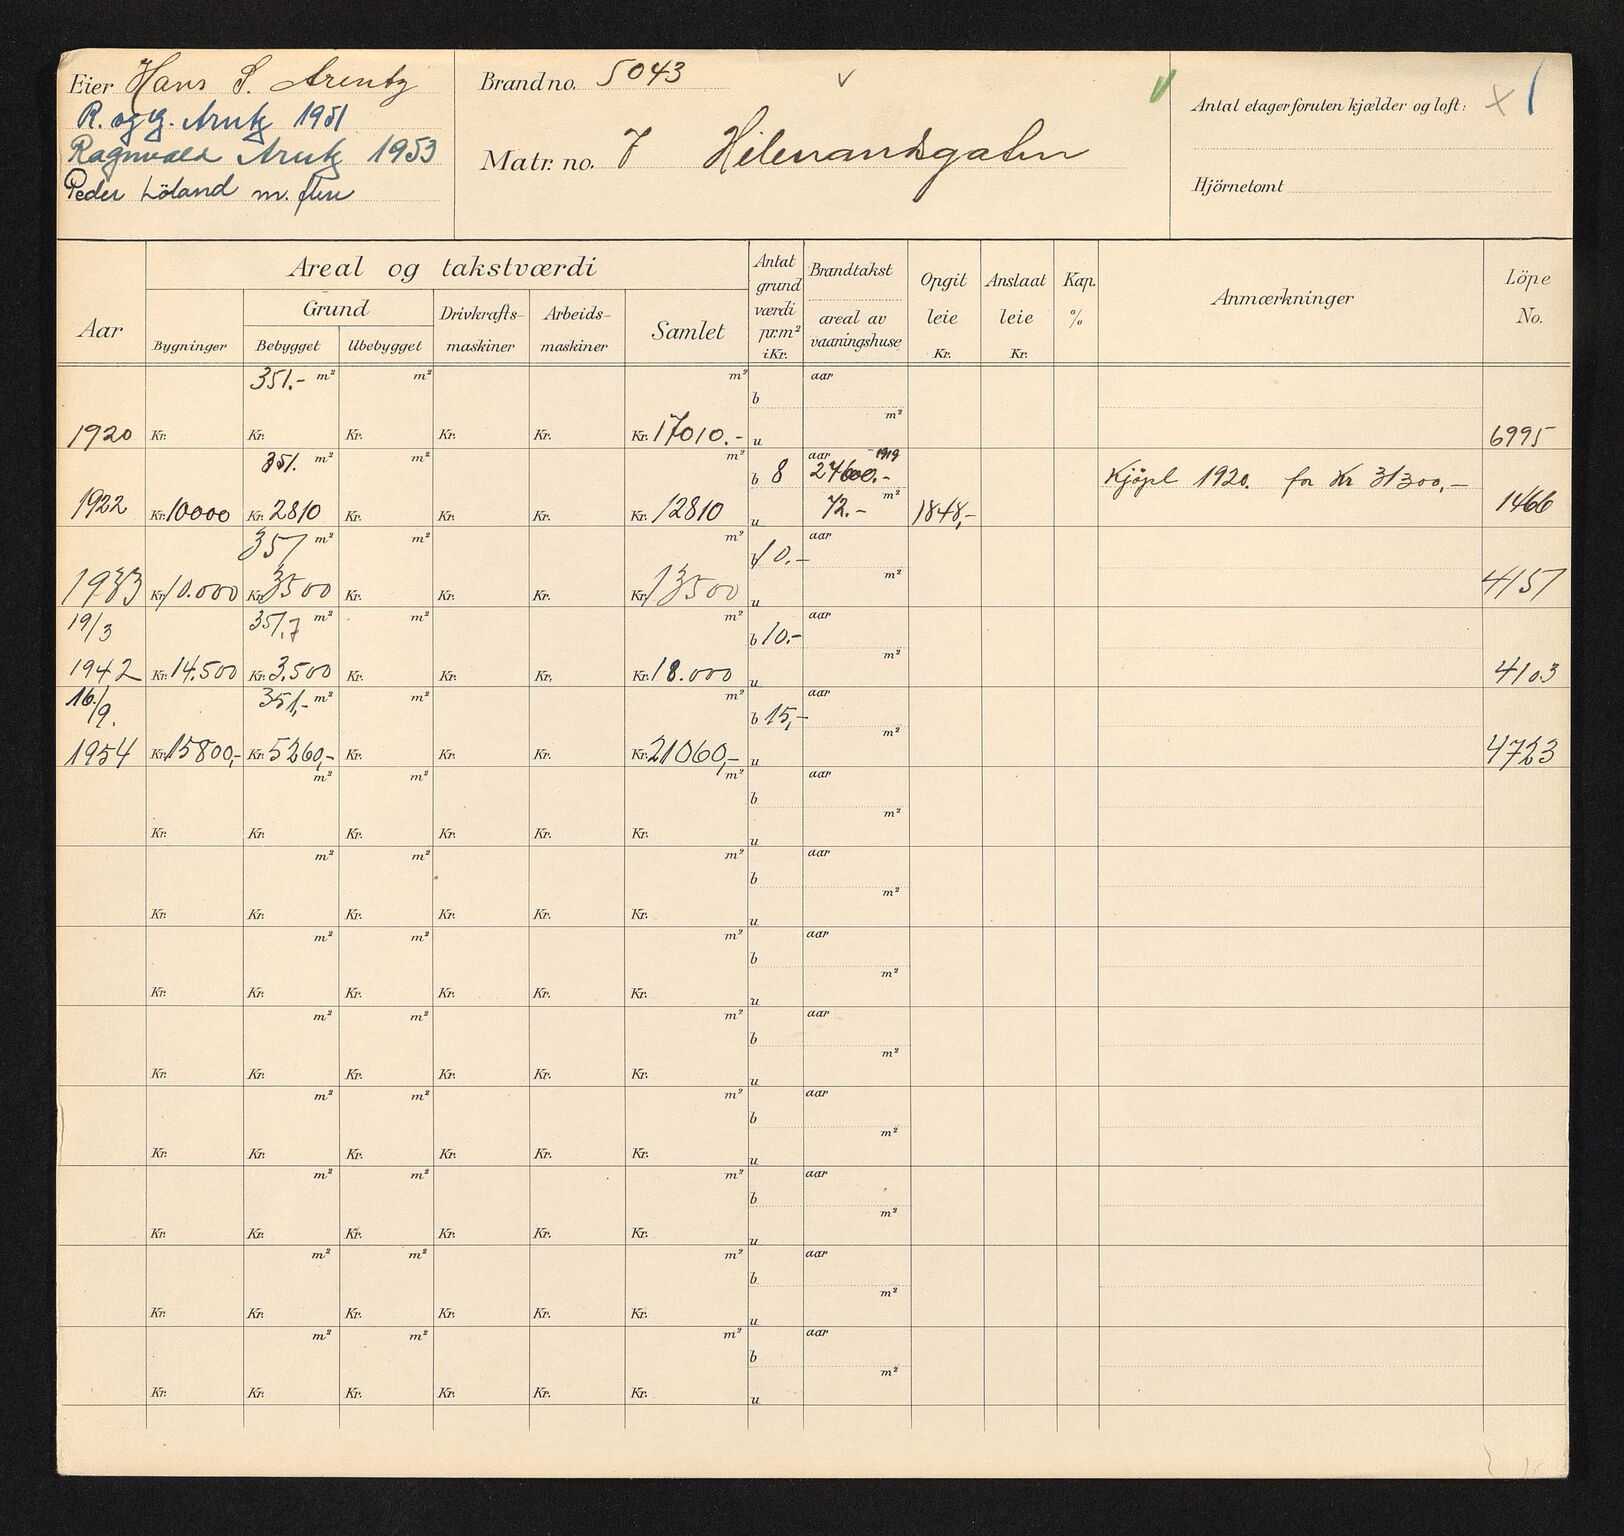 Eier Hans S. Arentz
R. og G. Arentz 1951
Ragnvald Arentz 1953
Peder Löland m. flere
Brandno. 5043
Matr. no. 7 Hilevaandsgaten
Antal etager foruten kjælder og loft: x 1
Hjörnetomt
Aar
Areal og takstværdi
Grund
Bygninger
Bebygget
Ubebygget
Drivkrafts-maskiner
Arbeids-maskiner
Samlet
Antat grund værdi pr.m² i Kr.
Brandtakst
areal av vaaningshuse
Opgit leie Kr.
Anslaat leie Kr.
Kap. %
Anmærkninger
Löpe No.
351.- m² m² m² b aar m²
1920 Kr. Kr. Kr. Kr. Kr. Kr. 17010.- u 6995
351. m² m² m² b 8 aar 1919 27600.- Kjöpt 1920. for Kr 31300,-
1922 Kr. 10000 Kr. 2810 Kr. Kr. Kr. Kr. 12810 u 72.- m² 1848,- 1466
351 m² m² m² b 10.- aar m²
1933 Kr. 10.000 Kr. 3500 Kr. Kr. Kr. Kr. 13500 u 4157
19/3 351,7 m² m² m² b 10.- aar m²
1942 Kr. 14.500 Kr. 3.500 Kr. Kr. Kr. Kr. 18.000 u 4103
16./9. 351,- m² m² m² b 15,- aar m²
1954 Kr. 15800,- Kr. 5260,- Kr. Kr. Kr. Kr. 21060,- u 4723
m² m² m² b aar m²
Kr. Kr. Kr. Kr. Kr. Kr. u
m² m² m² b aar m²
Kr. Kr. Kr. Kr. Kr. Kr. u
m² m² m² b aar m²
Kr. Kr. Kr. Kr. Kr. Kr. u
m² m² m² b aar m²
Kr. Kr. Kr. Kr. Kr. Kr. u
m² m² m² b aar m²
Kr. Kr. Kr. Kr. Kr. Kr. u
m² m² m² b aar m²
Kr. Kr. Kr. Kr. Kr. Kr. u
m² m² m² b aar m²
Kr. Kr. Kr. Kr. Kr. Kr. u
m² m² m² b aar m²
Kr. Kr. Kr. Kr. Kr. Kr. u